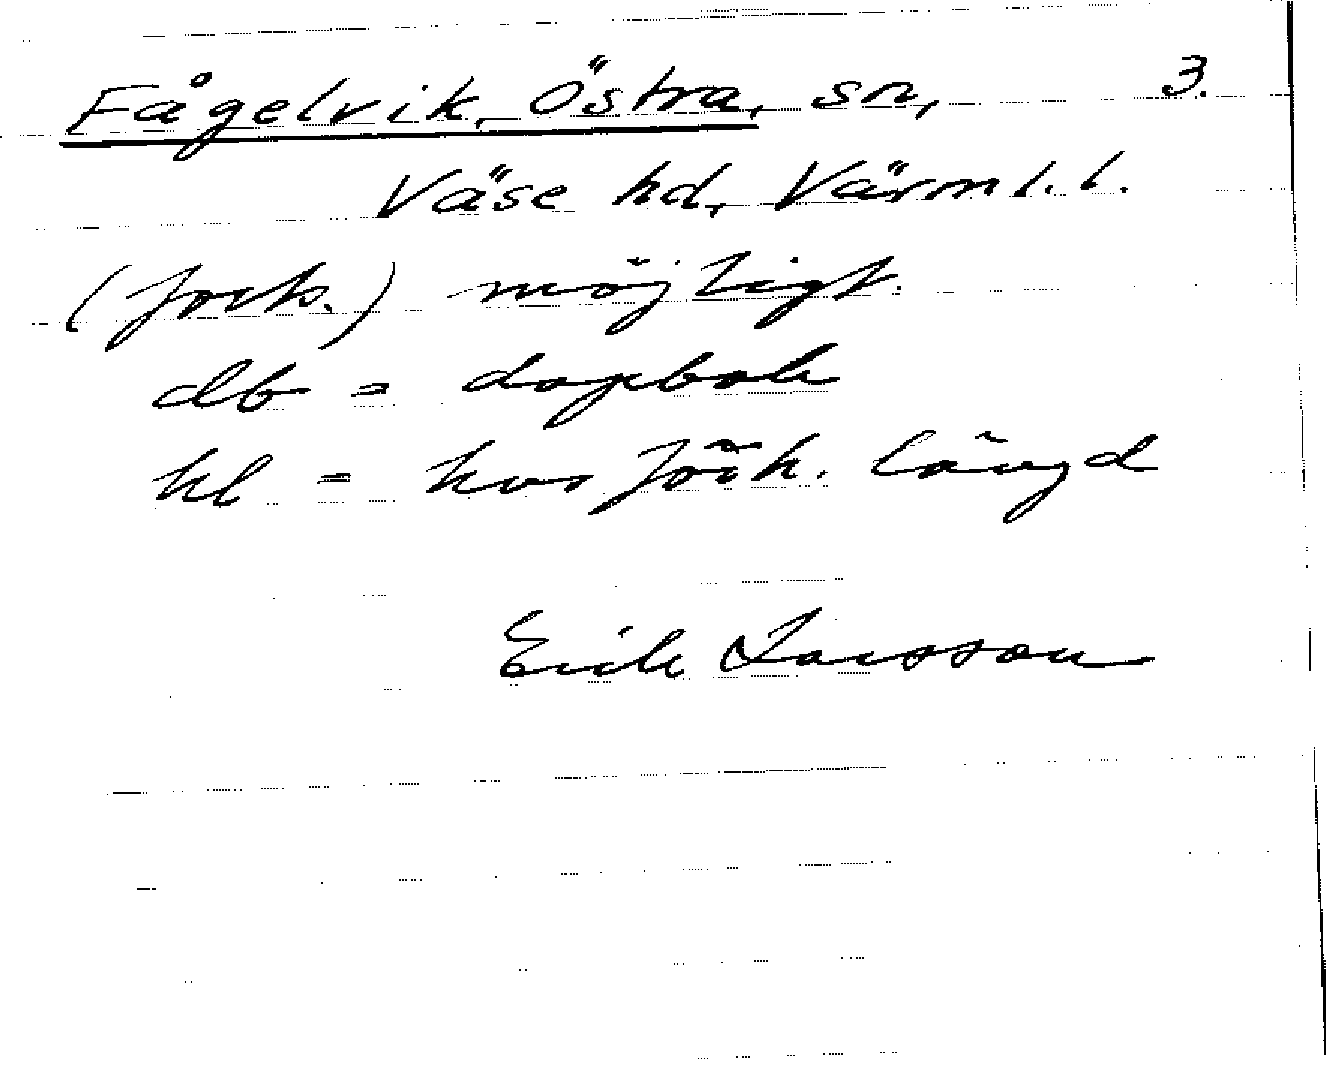 Fågelvik, Östra, sn, 3.
Väse hd, Värml. l.
(fork.) möjligt.
db = dopbok
hl = husförh. längd
Erik Larsson